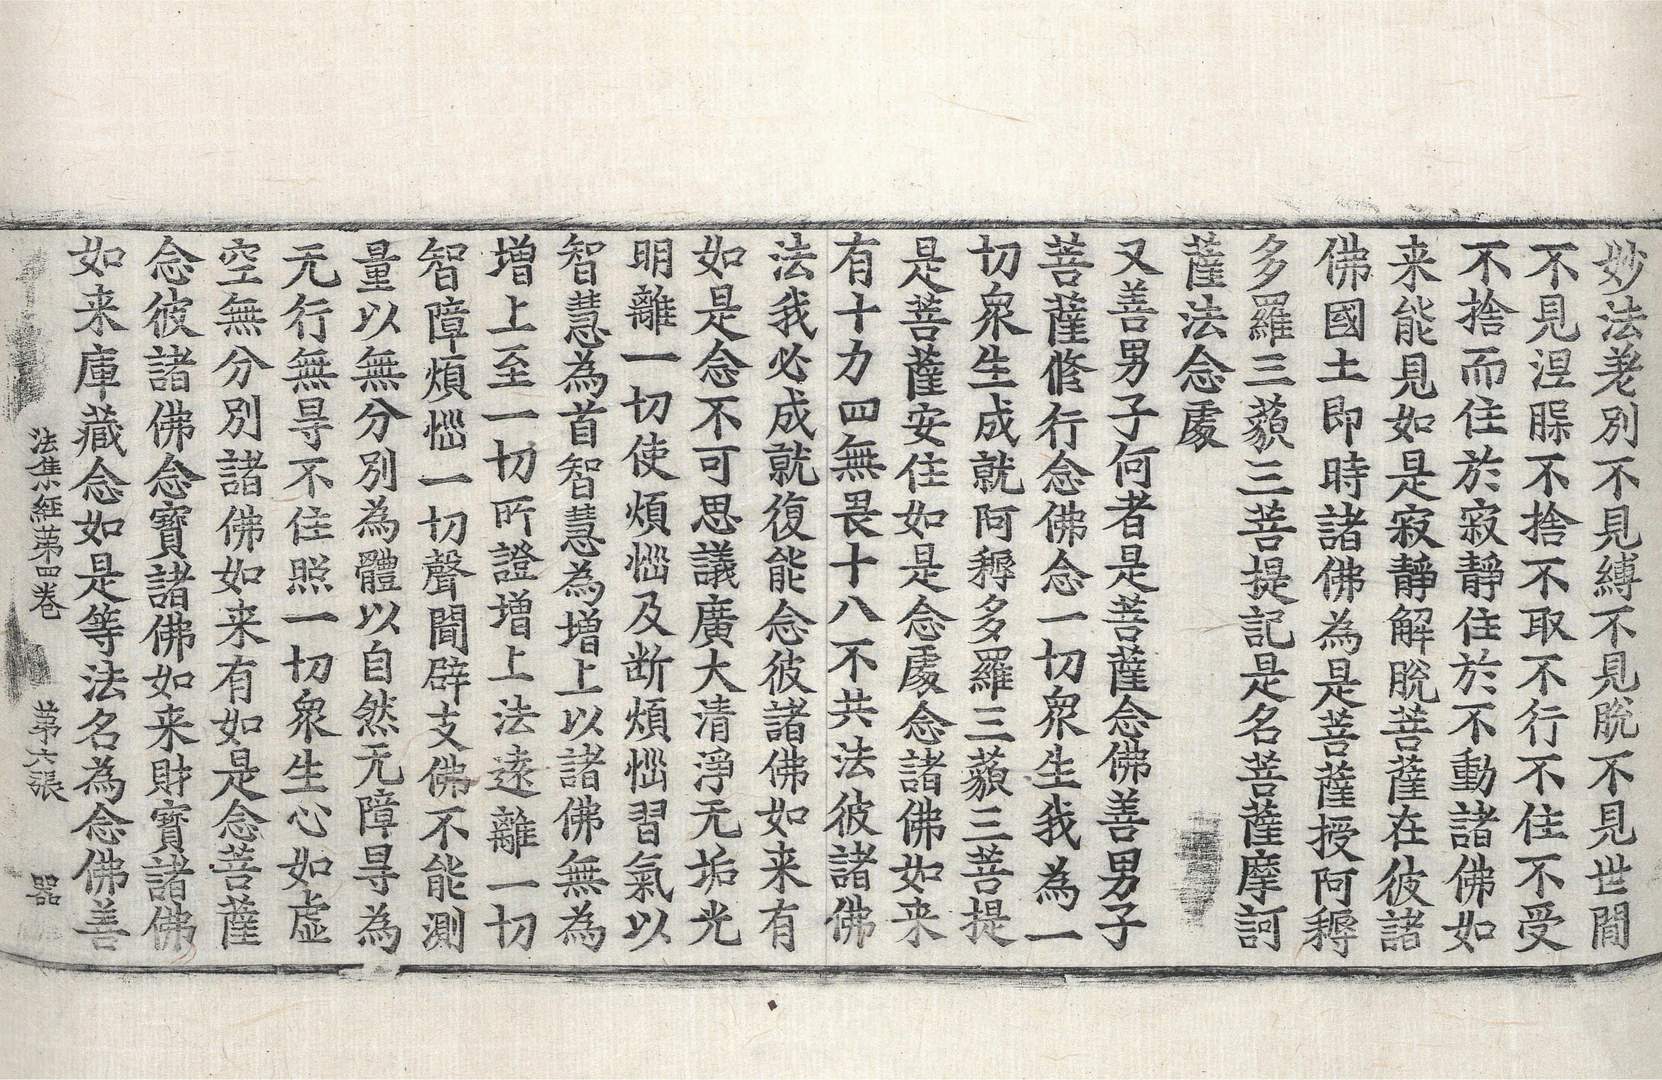 妙法差別不見縛不見脫不見世間
不見涅槃不捨不取不行不住不受
不捨而住於寂靜住於不動諸佛如
来能見如是寂靜解脫菩薩在彼諸
佛國土即時諸佛為是菩薩授阿耨
多羅三藐三菩提記是名菩薩摩訶
薩法念處
又善男子何者是菩薩念佛善男子
菩薩脩行念佛念一切衆生我為一
切衆生成就阿耨多羅三藐三菩提
是菩薩安住如是念處念諸佛如来
有十力四無畏十八不共法彼諸佛
法我必成就復能念彼諸佛如来有
如是念不可思議廣大清淨无垢光
明離一切使煩惱及断煩惱習氣以
智慧為首智慧為増上以諸佛無為
増上至一切所證増上法遠離一切
智障煩惱一切聲聞辟支佛不能測
量以無分別為體以自然无障㝵為
无行無㝵不住照一切衆生心如虛
空無分別諸佛如来有如是念菩薩
念彼諸佛念寶諸佛如来財寶諸佛
如来庫藏念如是等法名為念佛善
法集經苐四卷 苐六張 器